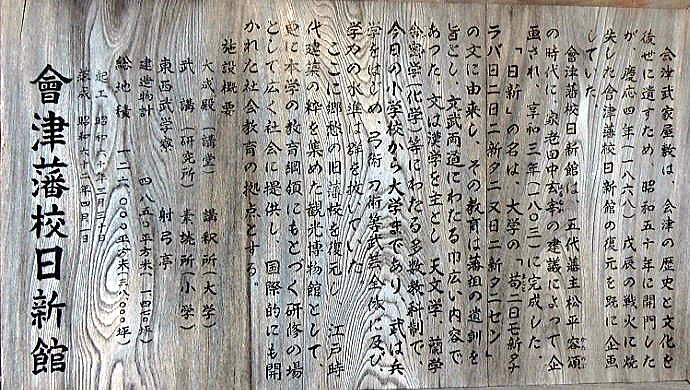 会津武家屋敷は 会津の歴史と文化を
後世に遺すため 昭和五十年に開門した
が 慶応四年(一八六八) 戊辰の戦火に焼
失した会津藩校日新館の復元を既に企画
していた。
會津藩校日新館は、五代藩主松平容頌
の時代に、家老田中玄宰の建議によって企
画され、享和三年(一八〇三)に完成した。
「日新」の名は、大学の「苟ニ日ニ新タナ
ラバ日ニ日ニ新タニ又日ニ新タナラン」
の文に由来し、その教育は藩祖の遺訓を
旨とし、文武両道にわたる巾広い内容で
あった。文は漢学を主とし 天文学、蘭学
舎密学(化学)等にわたる多数教科制で、
今日の小学校から大学までであり、武は兵
学をはじめ 弓術 刀術等武芸全体に及び、
学力の水準は群を抜いていた。
ここに郷愁の旧藩校を復元し 江戸時
代建築の粋を集めた観光博物館として、
更に本学の教育綱領にもとづく研修の場
として広く社会に提供し 国際的にも開
かれた社会教育の拠点とする。
施設概要
大成殿(講堂) 講釈所(大学)
武講(研究所) 素読所(小学)
東西武学寮 射弓亭
建造物計 四八五〇平方米(一四七〇坪)
総地積 一二六、〇〇〇平方米(三八、〇〇〇坪)
起工 昭和
落成 昭和六十二年四月一日
會津藩校日新館